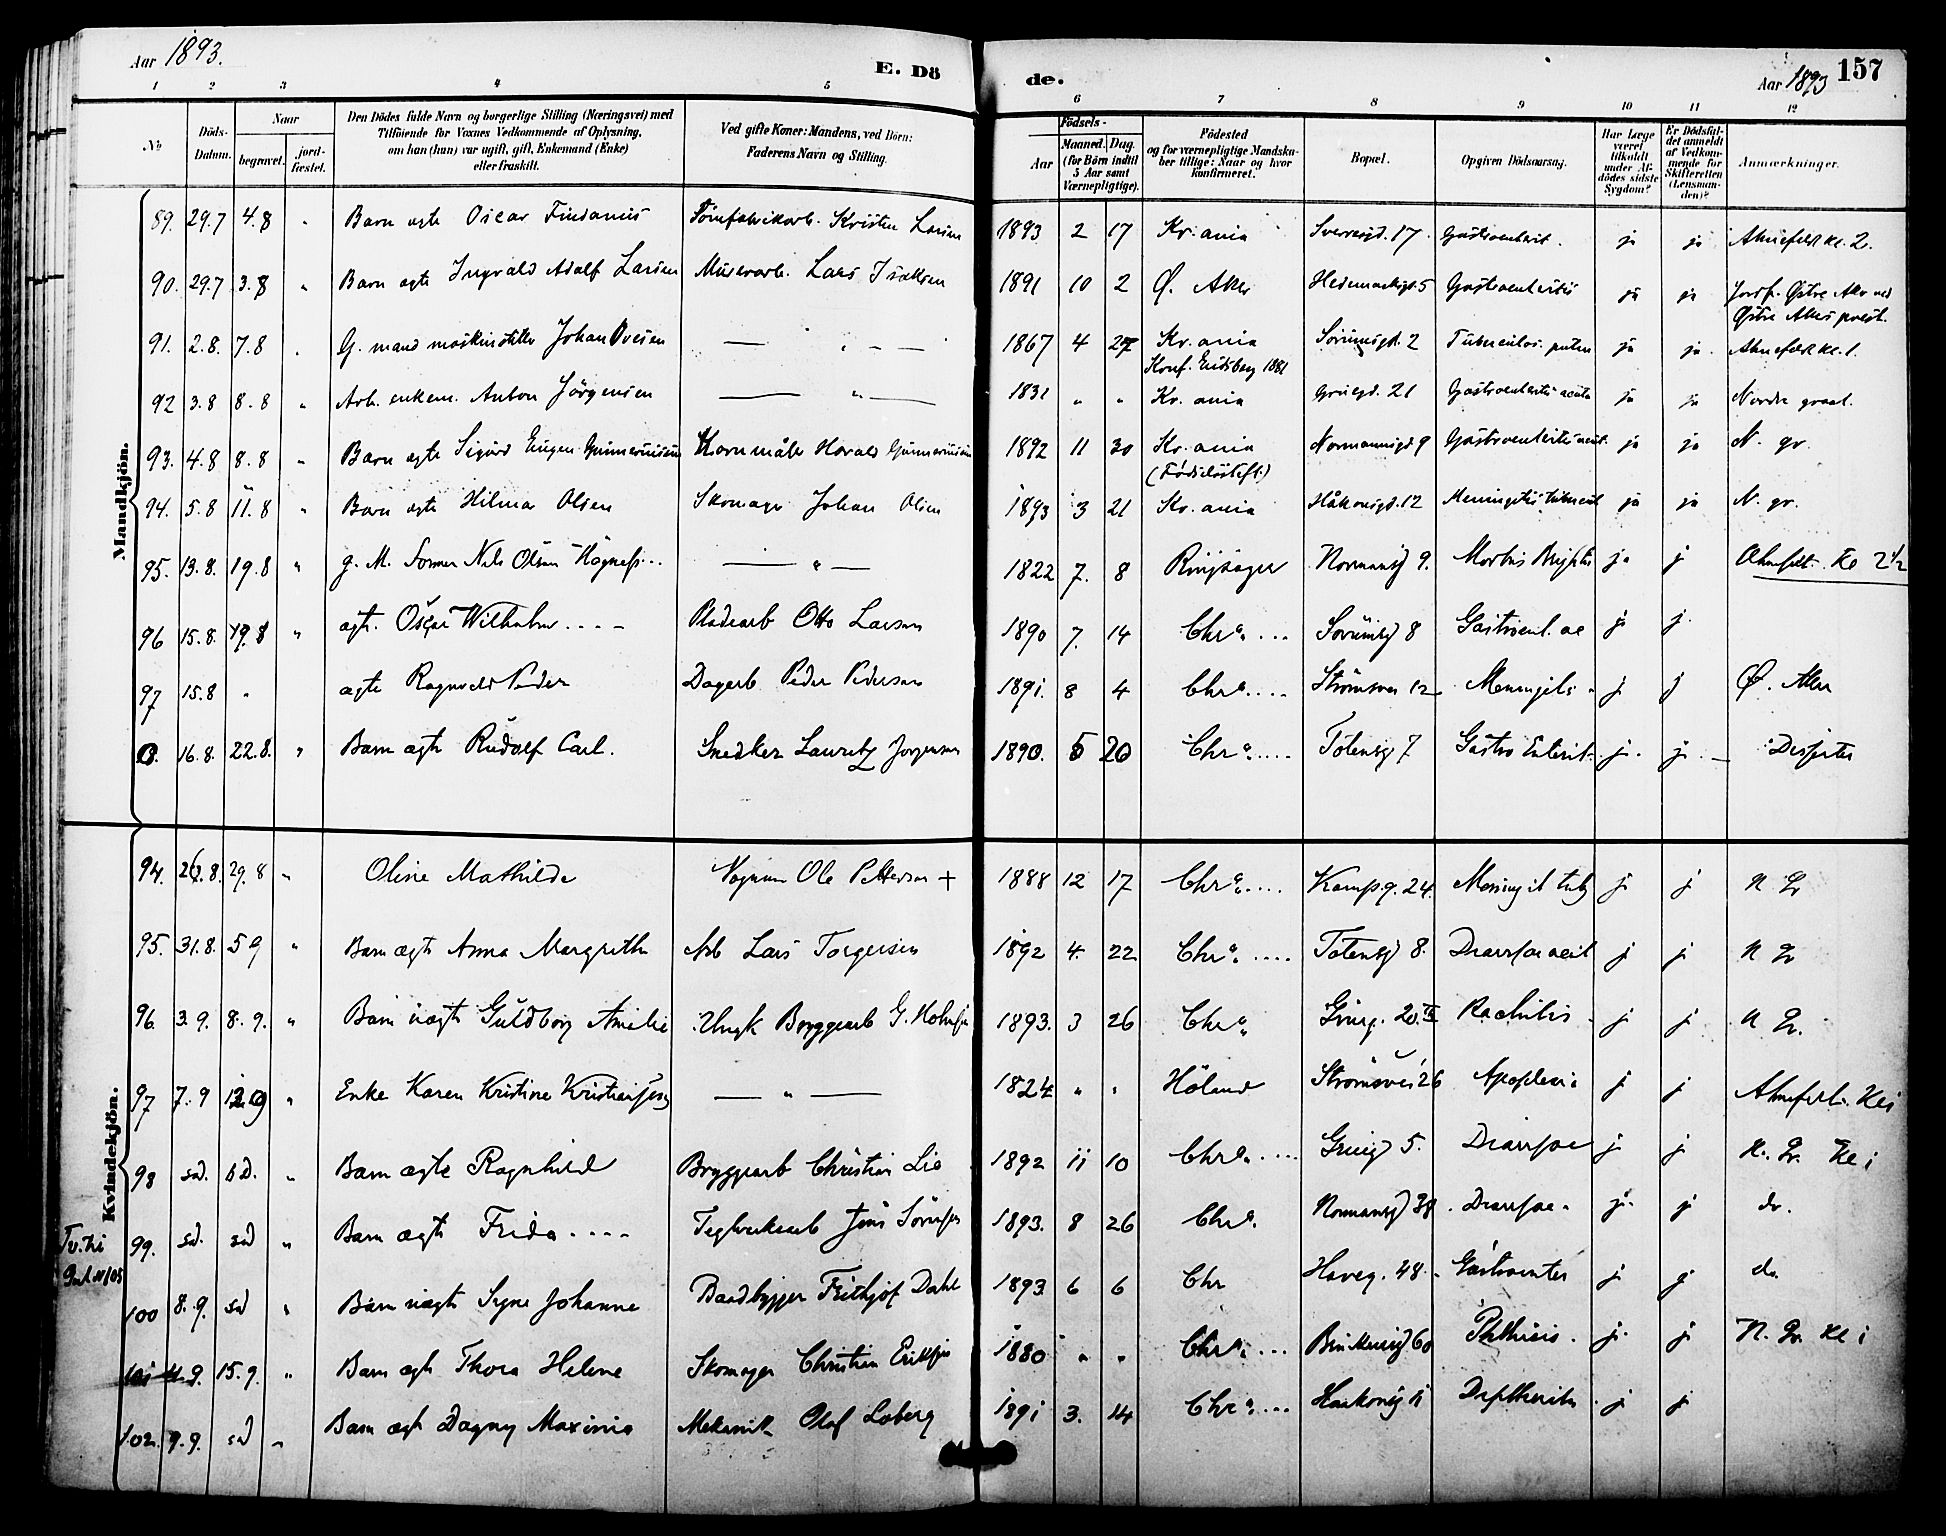 Aar 1893.
E. Dö
de.
Aar 1893
157
1 2 3 4 5 6 7 8 9 10 11 12
No
Döds-Datum.
Naar
begravet.
jordfæstet.
Den Dödes fulde Navn og borgerlige Stilling (Næringsvei) med
Tilföiende for Voxnes Vedkommende af Oplysning,
om han (hun) var ugift, gift, Enkemand (Enke)
eller fraskilt.
Ved gifte Koner: Mandens, ved Börn:
Faderens Navn og Stilling.
Födsels-
Aar
Maaned. Dag.
(for Börn indtil
5 Aar samt
Værnepligtige).
Födested
og for værnepligtige Mandska-
ber tillige: Naar og hvor
konfirmeret.
Bopæl.
Opgiven Dödsaarsag.
Har Læge
været
tilkaldt
under Af-
dödes sidste
Sygdom?
Er Dödsfal-
det anmeldt
af Vedkom-
mende for
Skifteretten
(Lensman-
den)?
Anmærkninger.
Mandkjön.
89. 29.7 4.8 " Barn ægte Oscar Kristen Larsen 1893 2 17 Kr.ania Sverresgd. 17. Gastroenterit. ja ja Ahnefeldt kl. 2.
90. 29.7 3.8 " Barn ægte Ingvald Adolf Larsen Murerarb. Lars Isaksen 1891 10 2 Ø. Aker Hedemarksgd. 5 Gastroenteritis ja ja Jordf. Østre Aker ved
Østre Akers prest.
91. 2.8. 7.8 " G. mand Johan Ovesen — " — 1867 4 27 Kr.ania Sörumsgd. 2 Tuberculos. pulm ja ja. Ahnefeldt kl. 1.
Konf. Eidsberg 1881
92 3.8 8.8 " Arb. enkem. Anton Jörgensen — " — 1831 " " Kr.ania Gruegd. 21 Gastroenteritis acuta ja ja Nordre gravl.
93. 4.8 8.8 " Barn ægte Sigurd Eugen Gunneriusen Kornmåler Harald Gunneriusen 1892 11 30 Kr.ania Normannsgd 9 Gastroenteritis acut. ja ja N. gr.
(Födselsstift.)
94. 5.8 11.8 " Barn ægte Hilmar Olsen Skomager Johan Olsen 1893 3 21 Kr.ania Håkonsgd. 12 Meningitis tubercul ja ja N. gr.
95. 13.8. 19.8 " g. M. Nils Olsen — " — 1822 7. 8 Ringsager Normansgd 9. Morbus Brightii ja j Ahnefeldt. Kl 2 1/2
96 15.8. 19.8 " ægte. Oscar Wilhelm .... Pladearb Otto Larsen 1890 7. 14 Chra. ... Sorumsgd 8 Gastroent. ac j j.
97 15.8 " ægte Ragnvald Peder Dagarb Peder Pedersen 1891. 8 4 Chra. ... Strömsvei 12 Meningitis j j Ø. Aker
16.8. 22.8. " Barn ægte Rudolf Carl. Snedker Lauritz Jorgensen 1890. 5 20 Chra. ... Totensgd 7 Gastro Enterit. j. j.
Kvindekjön.
94. 26.8. 29.8 " Oline Mathilde Vognm Ole Pettersen + 1888 12 17 Chra. ... Kampsg. 24. Meningit tub j j N Gr
95. 31.8. 5 9 " Barn ægte Anna Margrethe Arb Lars Torgersen 1892 4. 22 Chra. ... Totensgd 8. Diarrhoe acut j j N Gr
96. 3.9. 8.9. " Barn uægte Guldborg Amalie Ungk Bryggearb G. 1893. 3 26 Chra. Grueg. 20. IV Rachitis j j N Gr.
97 7.9 " Enke Karen Kristine — " — 1824 " " Höland Strömsvei 26 Apoplexia j j Ahnefeldt. Kl 1
98 sd. sd. " Barn ægte Ragnhild Bryggearb Christian Lie 1892 11 10 Chra. ... Grueg 5. Diarrhoe j j N. Gr. Kl 1
99. sd. sd " Barn ægte Frida .... Teglverksarb Jens 1893. 8 26 Chra. Normansgd 38 Diarrhoe. j. j do.
100 8.9. sd " Barn uægte Signe Johanne Baadbygger Frithjof Dahl 1893 6 6 Chr Haveg. 48. Gastroenter j. j do
101 11.9. 15.9. " Barn ægte Thora Helene Skomager Christian 1880 " " Chra. ... 60 Phthisis. j. j N. Gr. Kl 1
102. 9.9. sd " Barn ægte Dagny Maximia Mekanik Olaf Loberg 1891 3. 14 Chra. ... Haakonsg 11 Diphtheritis j j